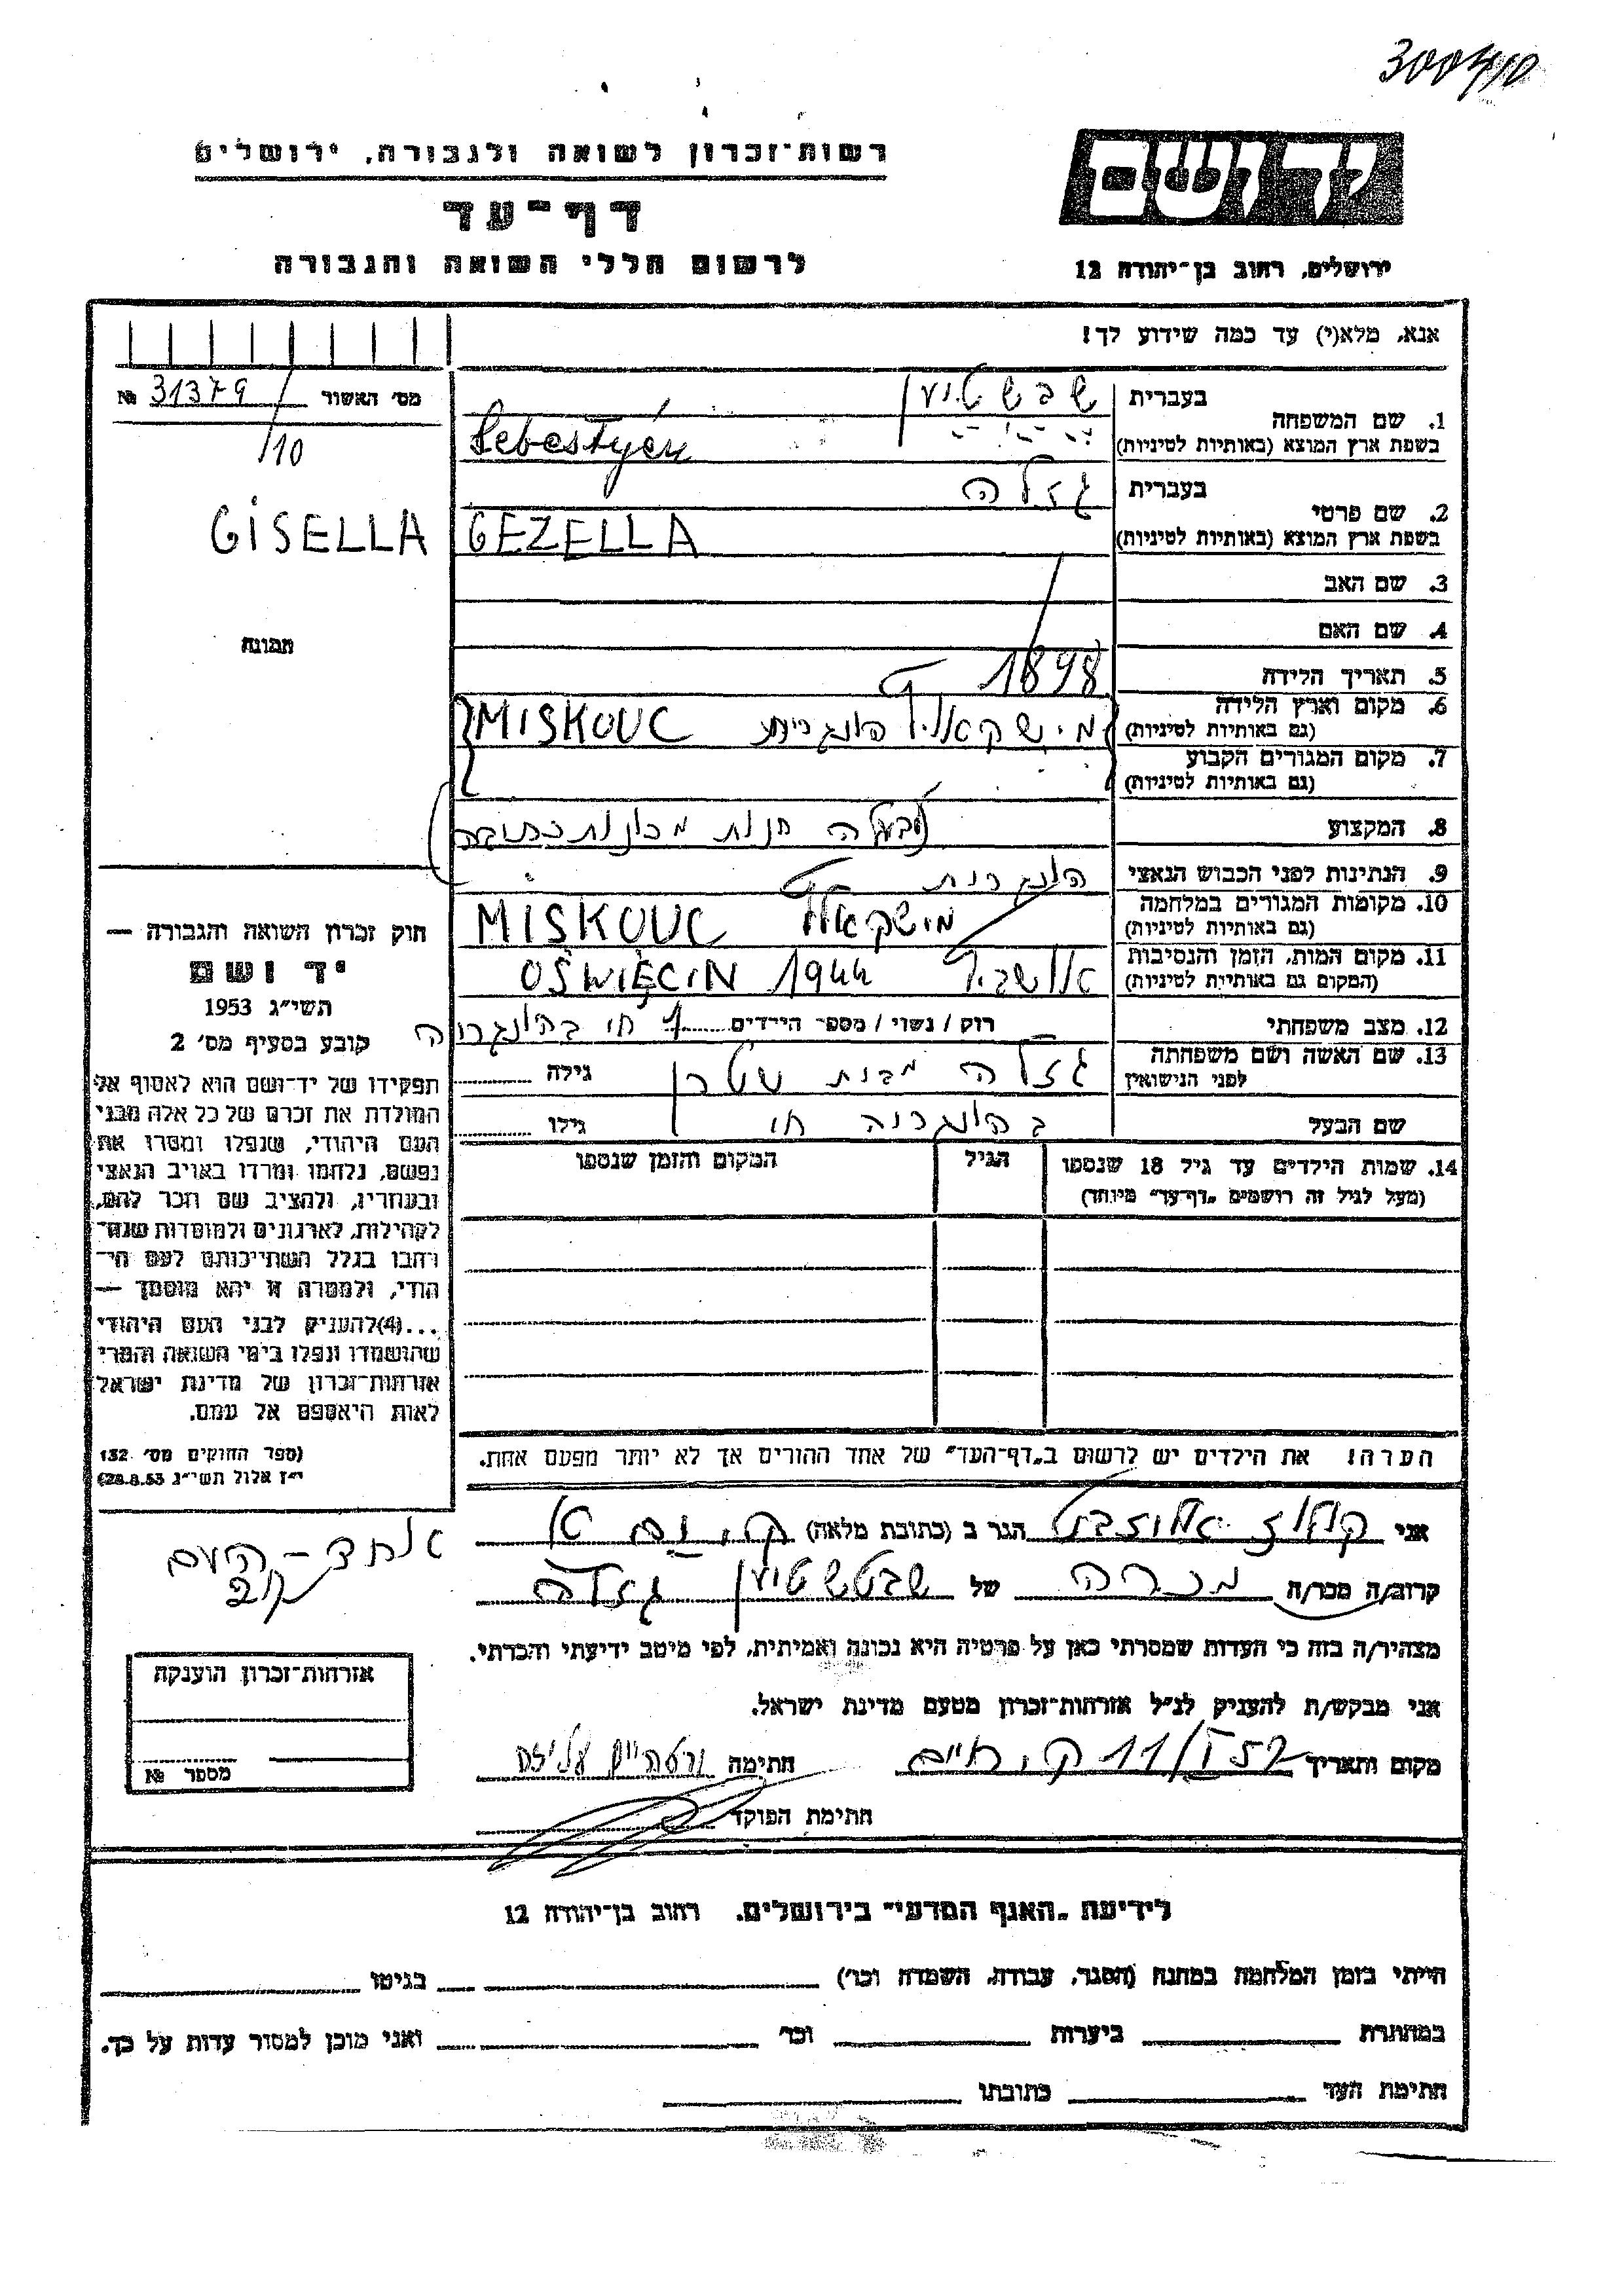 300410
רשות־זכרון לשואה ולגבורה, ירושלים
דף־עד
לרשום חללי השואה והגבורה
יד ושם
ירושלים, רחוב בן־יהודה 12
אנא, מלא(י) עד כמה שידוע לך!
מס׳ האשור № 31379
/10
1. שם המשפחה
בעברית
בשפת ארץ המוצא (באותיות לטיניות)
Sebestyén
2. שם פרטי
בעברית גזלה
בשפת ארץ המוצא (באותיות לטיניות) GEZELLA
GISELLA
3. שם האב
4. שם האם
תמונה
5. תאריך הלידה 1898
6. מקום וארץ הלידה
(גם באותיות לטיניות) הונגריה MISKOUC
7. מקום המגורים הקבוע
(גם באותיות לטיניות)
8. המקצוע חנות מכונות כתיבה
9. הנתינות לפני הכבוש הנאצי הונגרית
10. מקומות המגורים במלחמה
(גם באותיות לטיניות) MISKOUC
11. מקום המות, הזמן והנסיבות
(המקום גם באותיות לטיניות) OŚWIĘCIN 1944
12. מצב משפחתי רוק / נשוי / מספר הילדים 1 חי בהונגריה
13. שם האשה ושם משפחתה
לפני הנישואין גזלה מבית שטרן גילה
שם הבעל בהונגריה חי גילו
14. שמות הילדים עד גיל 18 שנספו
(מעל לגיל זה רושמים „דף־עד״ מיוחד)
הגיל
המקום והזמן שנספו
הערה! את הילדים יש לרשום ב„דף־העד״ של אחד ההורים אך לא יותר מפעם אחת.
חוק זכרון השואה והגבורה —
יד ושם
תשי״ג 1953
קובע בסעיף מס׳ 2
תפקידו של יד־ושם הוא לאסוף אל
המולדת את זכרם של כל אלה מבני
העם היהודי, שנפלו ומסרו את
נפשם, נלחמו ומרדו באויב הנאצי
ובעוזריו, ולהציב שם וזכר להם,
לקהילות, לארגונים ולמוסדות שנח־
רבו בגלל השתייכותם לעם הי־
הודי, ולמטרה זו יהא מוסמך —
...(4)להעניק לבני העם היהודי
שהושמדו ונפלו בימי השואה והמרי
אזרחות־זכרון של מדינת ישראל
לאות היאספם אל עמם.
(ספר החוקים מס׳ 132
י״ז אלול תשי״ג 28.8.53)
אני הגר ב (כתובת מלאה)
אחד־העם
קרוב/ה מכר/ה מכרה של גזלה
מצהיר/ה בזה כי העדות שמסרתי כאן על פרטיה היא נכונה ואמיתית, לפי מיטב ידיעתי והכרתי.
אני מבקש/ת להעניק לנ״ל אזרחות־זכרון מטעם מדינת ישראל.
מקום ותאריך חתימה
חתימת הפוקד
אזרחות־זכרון הוענקה
מספר №
לידיעת „האגף המדעי״ בירושלים, רחוב בן־יהודה 12
הייתי בזמן המלחמה במחנה (הסגר, עבודה, השמדה וכו׳) בגיטו
במחתרת ביערות וכו׳ ואני מוכן למסור עדות על כך.
חתימת העד כתובתו